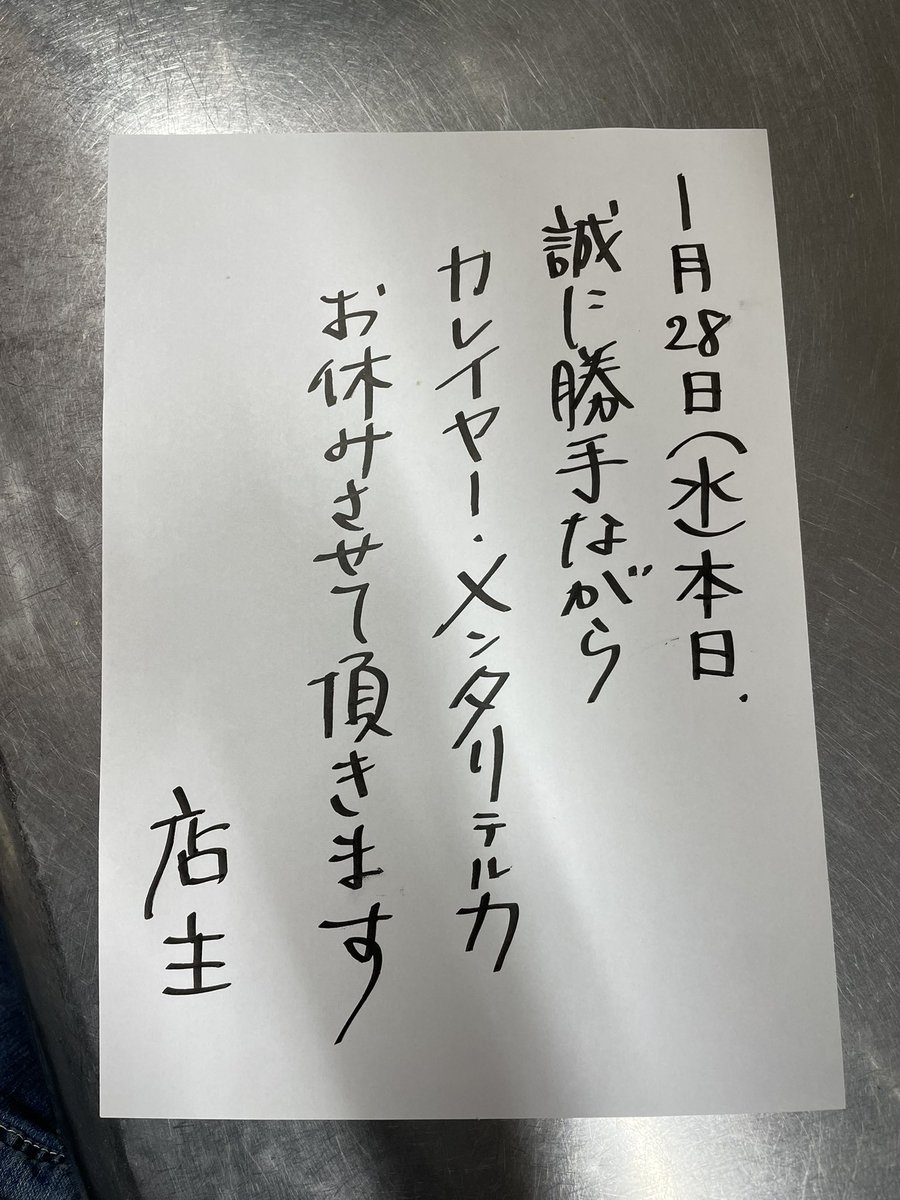 1月28日(水)本日.
誠に勝手ながら
カレイヤー・メンタリテルカ
お休みさせて頂きます
店主